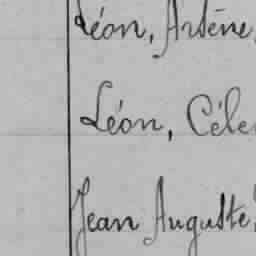 Léon, Arsène,
Léon, Céle
Jean Auguste,